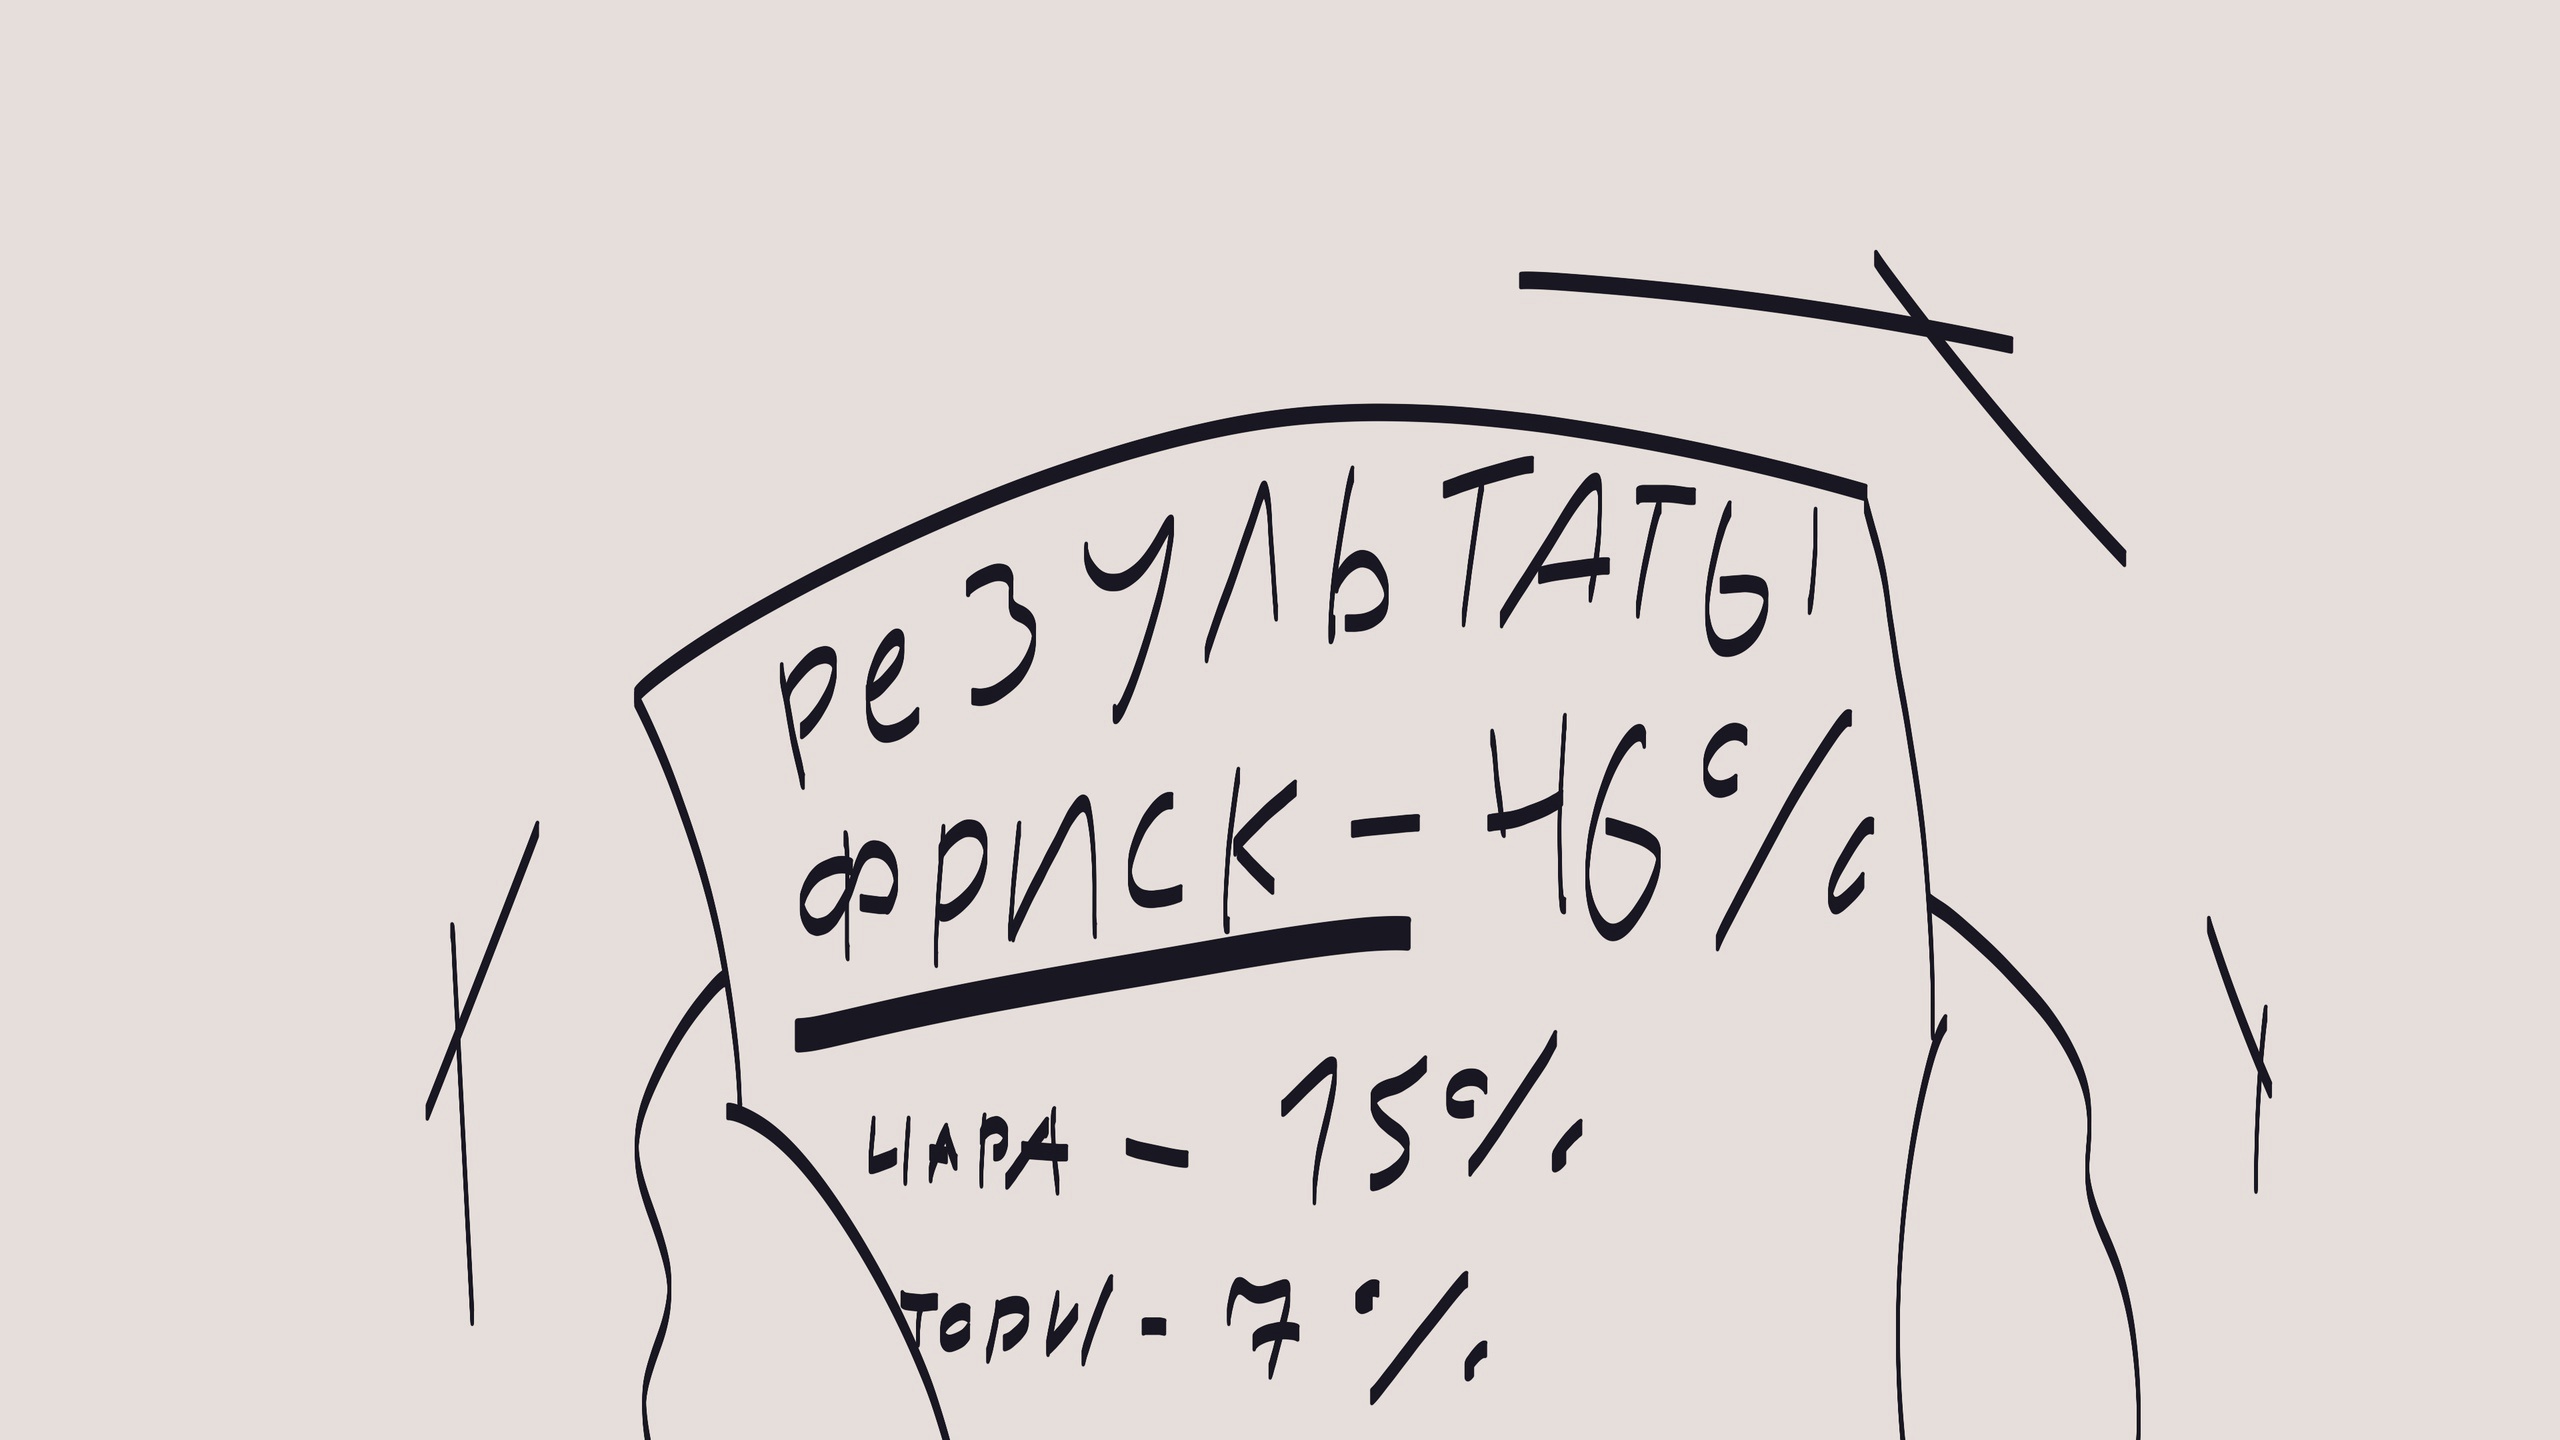 резУЛЬТАТЫ
фриск - 46%
ЧАРА - 15%
ТОРИ - 7%